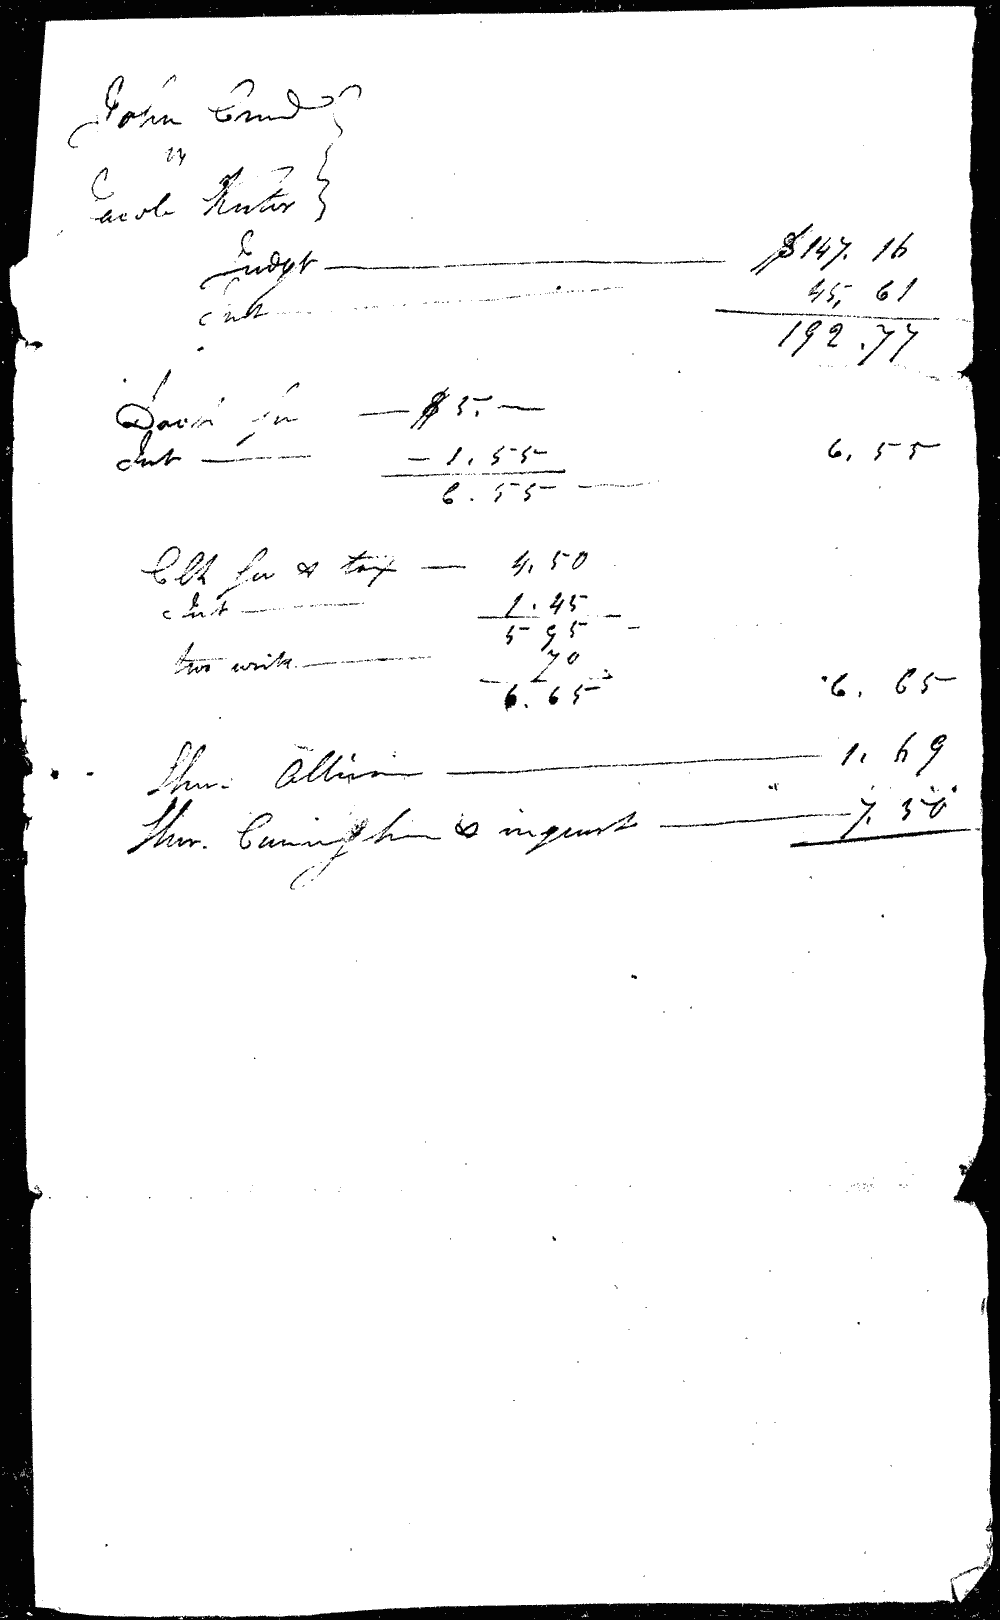 John
vs
Jacob
Judgt $147.16
Int 45,61
192.77
$5.
Int 1.55 6.55
6.55
Clk fee & tax 4.50
Int 1.45
5 95
two writs 70
6.65 6.65
Shur. Allison 1.69
Shur. Cuningham & inquest 7.50